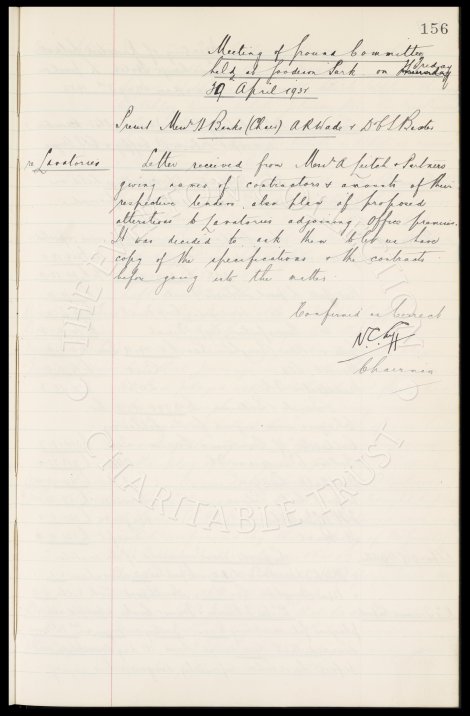 156
Meeting of Ground Committee
held at Goodison Park on Tuesday
April 1931
Present Messrs W Banks (Chair) A R Wade & Dr C S Baxter
re Lavatories Letter received from Messrs A Leitch & Partners
giving names of contractors & amounts of their
respective tenders also plan of proposed
alterations to Lavatories adjoining Office premises.
It was decided to ask them to let us have
copy of the specifications & the contracts
before going into the matter.
Confirmed as Correct
Chairman
THE
CHARITABLE TRUST